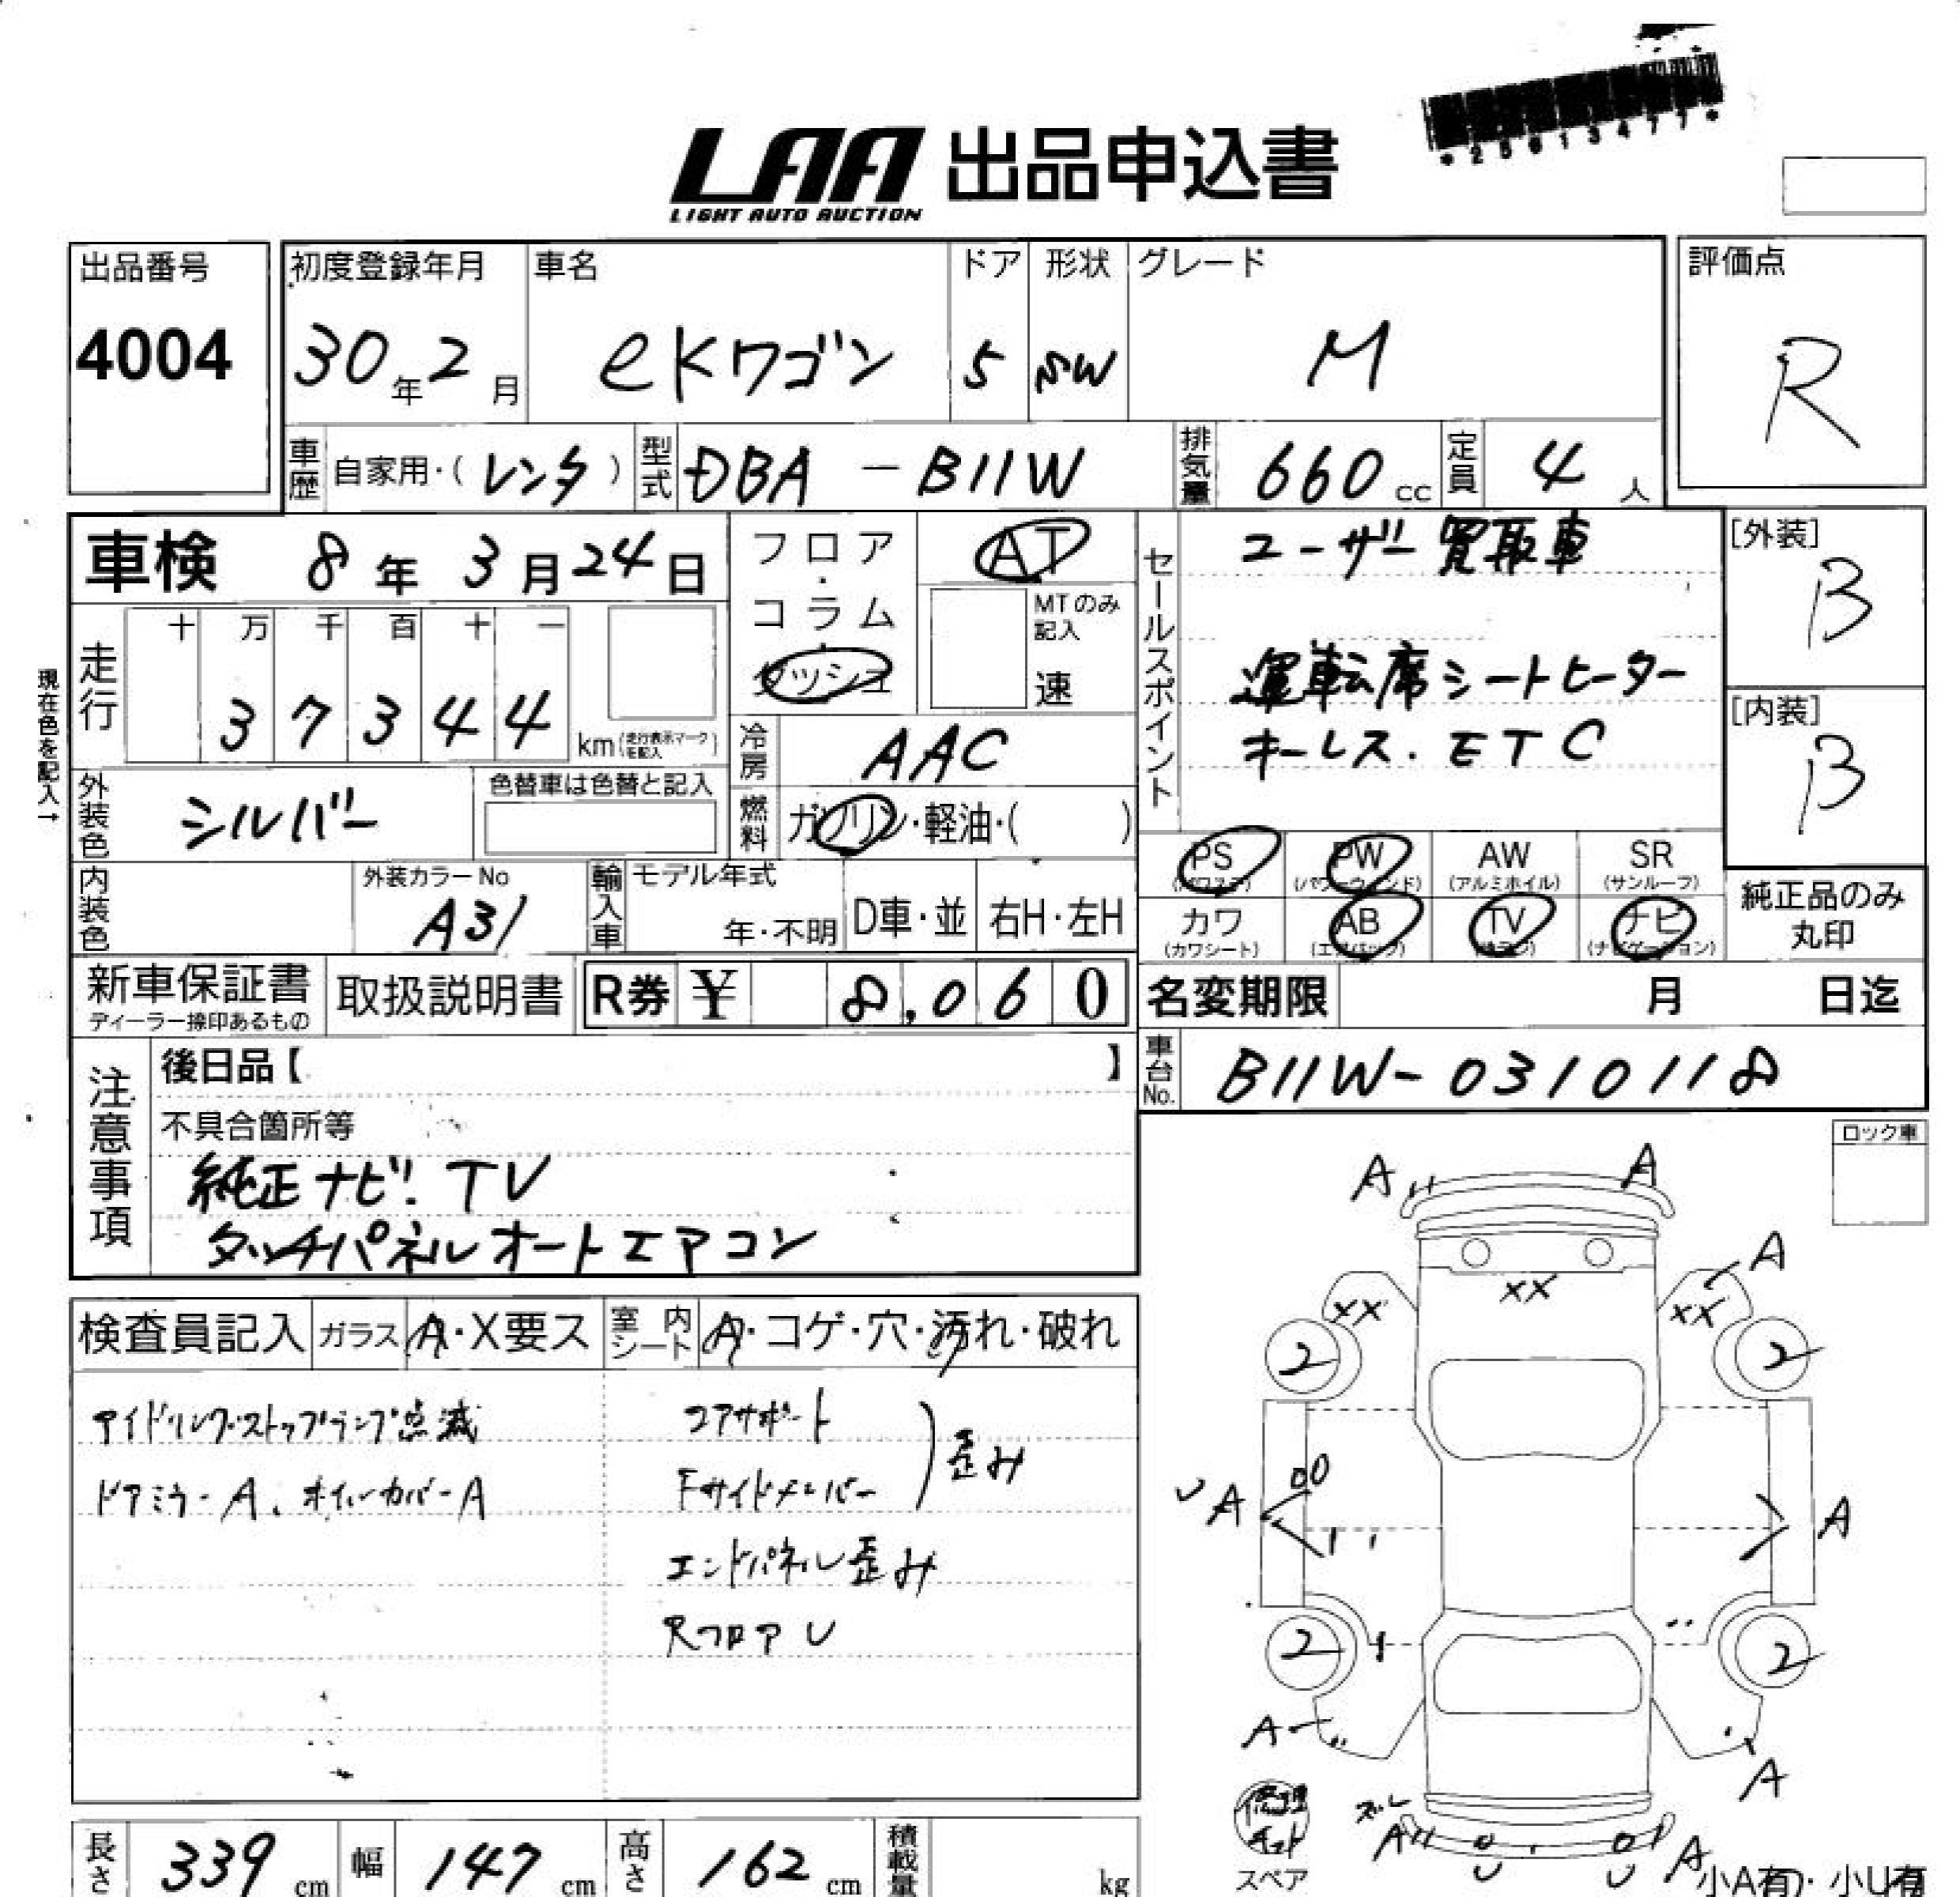 *25013477*
LAA 出品申込書
LIGHT AUTO AUCTION
出品番号
4004
初度登録年月
30年2月
車名
eKワゴン
ドア
5
形状
SW
グレード
M
評価点
R
車歴 自家用・(レンタ)
型式 DBA-B11W
排気量 660cc
定員 4人
車検 8年3月24日
フロア・コラム・ダッシュ
AT
MTのみ記入
速
セールスポイント
ユーザー買取車
運転席シートヒーター
キーレス.ETC
[外装]
B
[内装]
B
現在色を記入→
走行
十万千百十一
37344
km(走行表示マークを記入)
冷房 AAC
外装色 シルバー
色替車は色替と記入
燃料 ガソリン・軽油・( )
内装色
外装カラーNo
A31
輸入車
モデル年式
年・不明
D車・並
右H・左H
PS(パワステ)
PW(パワーウィンド)
AW(アルミホイル)
SR(サンルーフ)
カワ(カワシート)
AB(エアバック)
TV
ナビ(ナビゲーション)
純正品のみ丸印
新車保証書
ディーラー捺印あるもの
取扱説明書
R券 ¥ 8,060
名変期限 月 日迄
注意事項
後日品【 】
車台No. B11W-0310118
不具合箇所等
純正ナビ.TV
タッチパネルオートエアコン
ロック車
検査員記入
ガラス A・X要ス
室内シート A・コゲ・穴・汚れ・破れ
アイドリングストップランプ点滅
ドアミラーA、ホイルカバーA
コアサポート
Fサイドメンバー
歪み
エンドパネル歪み
RフロアU
A A
A
XX XX XX
2 2
UA A
2 2
A A
修理キット
スペア
ズレ
A U U A
小A有・小U有
長さ 339cm
幅 147cm
高さ 162cm
積載量 kg